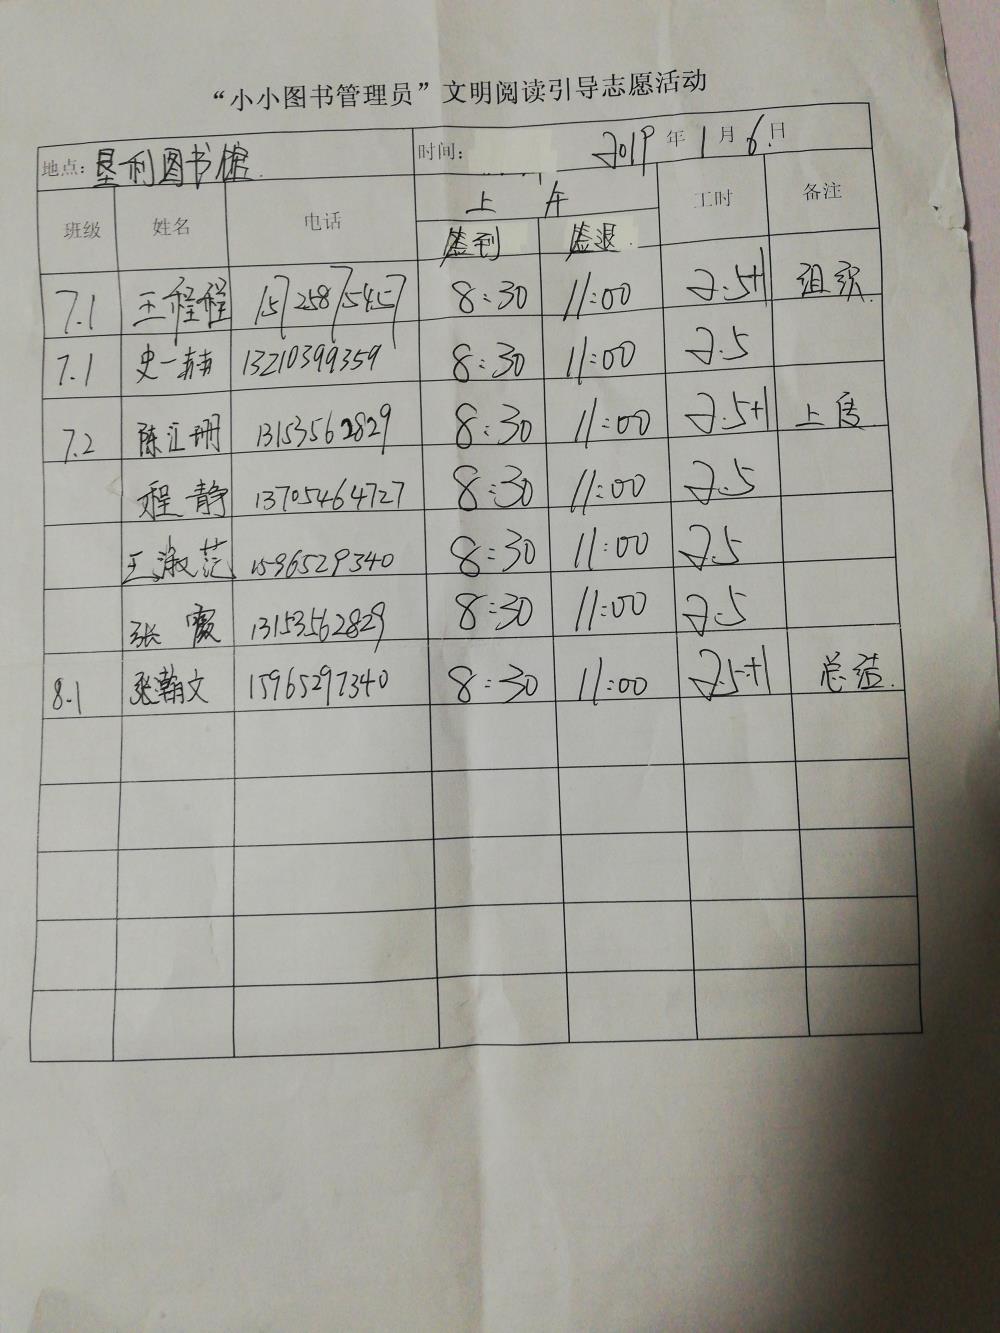 “小小图书管理员”文明阅读引导志愿活动
地点：垦利图书馆 时间： 2019 年 1 月 6 日
班级 姓名 电话 上午 工时 备注
签到 签退
7.1 王程程 15725875457 8:30 11:00 2.5+1 组织
7.1 史一 13210399359 8:30 11:00 2.5
7.2 陈汇珊 13153562829 8:30 11:00 2.5+1 上传
程静 13705464727 8:30 11:00 2.5
王淑范 8:30 11:00 2.5
张霞 13153562829 8:30 11:00 2.5
8.1 张瀚文 15965297340 8:30 11:00 2.5+1 总结